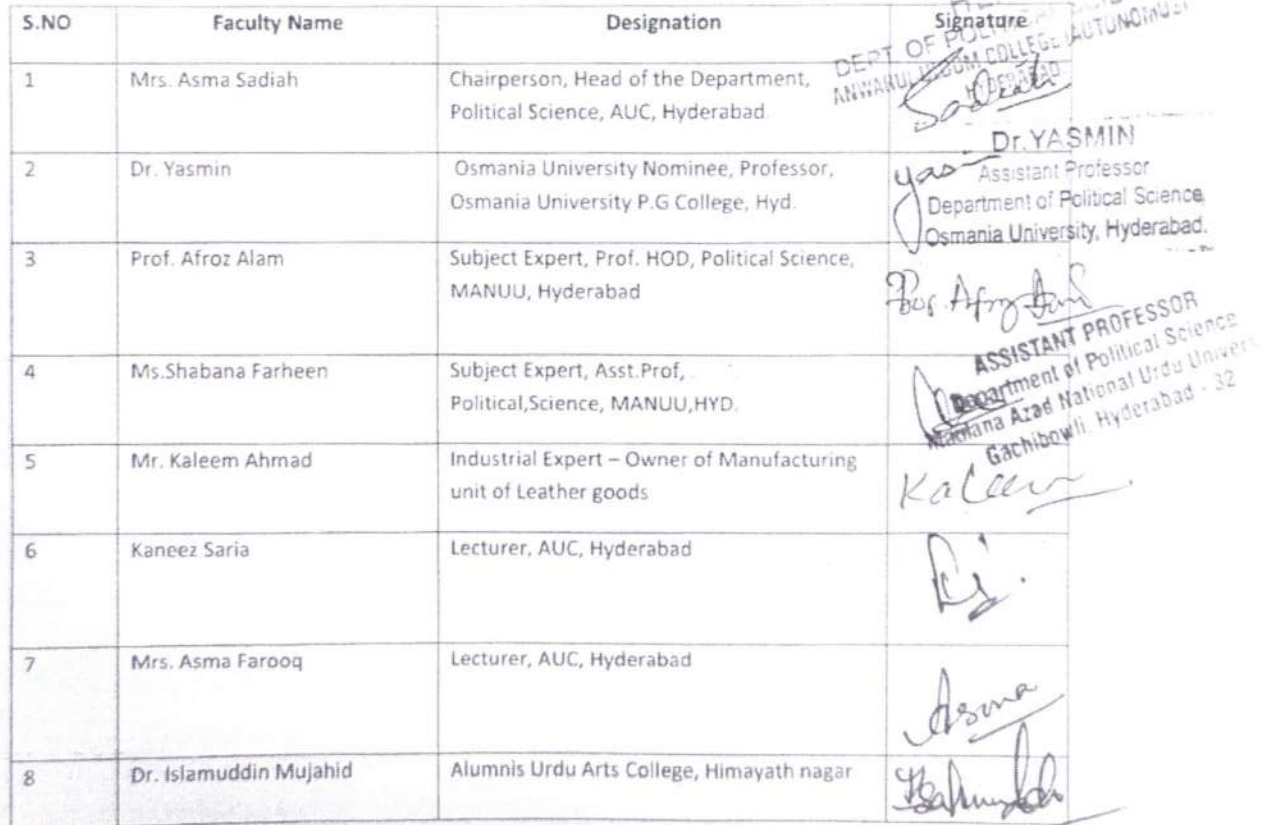 S.NO Faculty Name Designation Signature
DEPT OF
COLLEGE (AUTONOMOUS)
HYDERABAD
1 Mrs. Asma Sadiah Chairperson, Head of the Department,
Political Science, AUC, Hyderabad.
Sadiah
2 Dr. Yasmin Osmania University Nominee, Professor,
Osmania University P.G College, Hyd.
Dr. YASMIN
Assistant Professor
Department of Political Science
Osmania University, Hyderabad.
3 Prof. Afroz Alam Subject Expert, Prof. HOD, Political Science,
MANUU, Hyderabad
4 Ms.Shabana Farheen Subject Expert, Asst.Prof,
Political,Science, MANUU,HYD.
ASSISTANT PROFESSOR
Department of Political Science
Maulana Azad National Urdu Univers
Gachibowli, Hyderabad - 32
5 Mr. Kaleem Ahmad Industrial Expert – Owner of Manufacturing
unit of Leather goods
Kaleem
6 Kaneez Saria Lecturer, AUC, Hyderabad
7 Mrs. Asma Farooq Lecturer, AUC, Hyderabad
Asma
8 Dr. Islamuddin Mujahid Alumnis Urdu Arts College, Himayath nagar